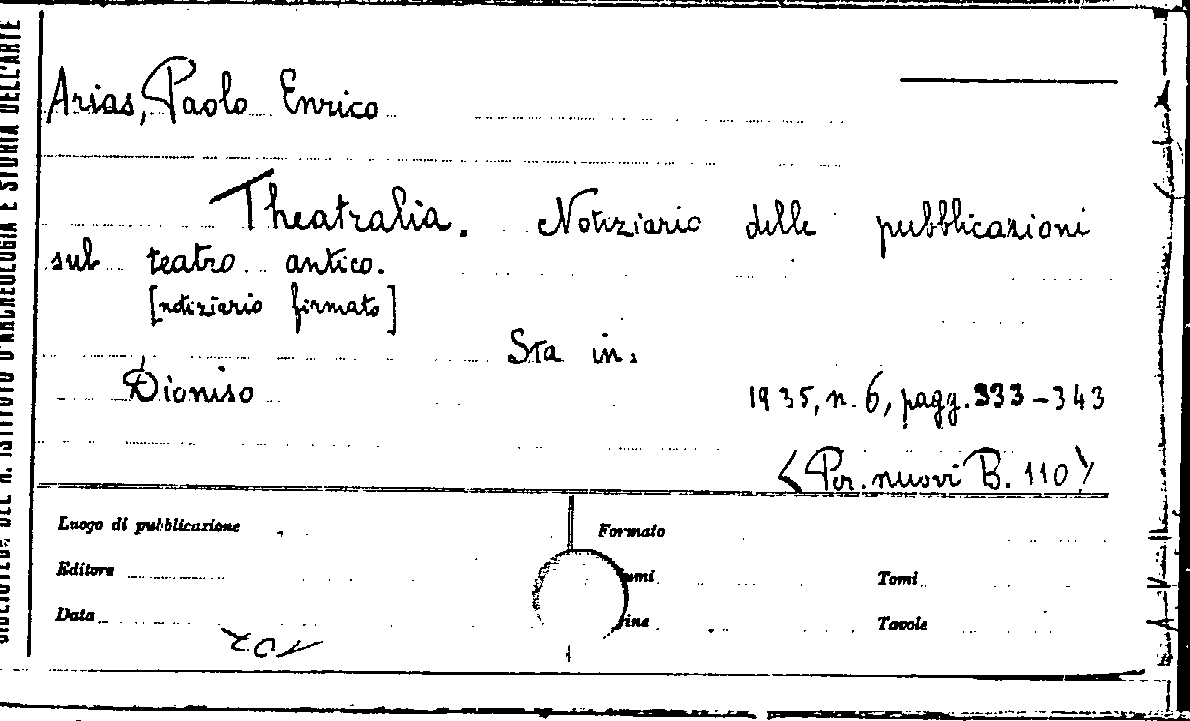 BIBLIOTECA DEL R. ISTITUTO D'ARCHEOLOGIA E STORIA DELL'ARTE
Arias, Paolo Enrico
Theatralia. Notiziario delle pubblicazioni
sul teatro antico.
[notiziario firmato]
Sta in:
Dioniso
1935, n. 6, pagg. 333-343
<Per. nuovi B. 110>
Luogo di pubblicazione
Formato
Editore
Tomi
Data
Tavole